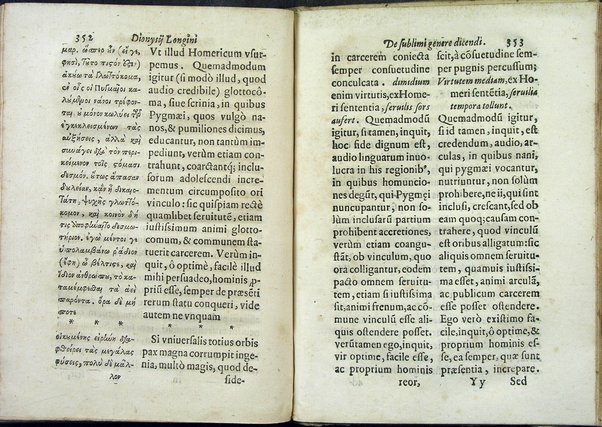 352 Dionysij Longini
μαρ. ὥσπερ οὖν (εἴ γε,
φησὶ, τοῦτο πιστόν ἐστι)
ἀκούω τὰ γλωττόκομα,
ἐν οἷς οἱ Πυγμαῖοι κα-
λούμενοι νᾶνοι τρέφον-
ται, οὐ μόνον κωλύει τῶν
ἐγκεκλεισμένων τὰς
αὐξήσεις, ἀλλὰ καὶ
συνάγει διὰ τὸν περι-
κείμενον τοῖς σώμασι
δεσμόν. οὕτως ἅπασαν
δουλείαν, κἂν ᾖ δικαιο-
τάτη, ψυχῆς γλωττό-
κομον, καὶ κοινὸν δή
τις ἀποφήναιτο δεσμω-
τήριον. ἐγὼ μέντοι γε
ὑπολαμβάνω ῥᾴδιον
(ἔφην) ὦ βέλτιστε, καὶ
ἴδιον ἀνθρώπου, τὸ κα-
ταμέμφεσθαι τὰ ἀεὶ
παρόντα. ὅρα δὲ μή
ποτε
* * * * * * * *
οἰκουμένης εἰρήνη δια-
φθείρει τὰς μεγάλας
φύσεις, πολὺ δὲ μᾶλ-
λον
Vt illud Homericum vsur-
pemus. Quemadmodum
igitur (si modò illud, quod
audio credibile) glottocô-
ma, siue scrinia, in quibus
Pygmæi, quos vulgò na-
nos, & pumiliones dicimus,
educantur, non tantùm im-
pediunt, verùm etiam con-
trahunt, coarctantq; inclu-
sorum adolescendi incre-
mentum circumposito ori
vinculo: sic quispiam rectè
quamlibet seruitutẽ, etiam
iustissimam animi glotto-
comum, & communem sta-
tuerit carcerem. Verùm in-
quit, ô optimè, facilè illud
mihi persuadeo, hominis ,pri
priũ esse, semper de præsẽti
rerum statu conqueri, vide
autem ne vnquam
Si vniuersalis totius orbis
pax magna corrumpit inge-
nia, multò magis, quod de-
side-
De sublimi genere dicendi. 353
in carcerem coniecta
semper consuetudine
conculcata . dimidium
enim virtutis, ex Home-
ri sententia, seruilis sors
aufert. Quemadmodũ
igitur, si tamen, inquit,
hoc fide dignum est,
audio linguarum inuo-
lucra in his regionib',
in quibus homuncio-
nes degũt, qui Pygmęi
nuncupantur, non so-
lùm inclusarũ partium
prohibent accretiones,
verum etiam coangu-
stãt, ob vinculum, quo
ora colligantur, eodem
statutem, etiam si iustissima
sit, animi frenum, ac cõ-
mune vinculũ esse ali-
quis ostendere posset.
verũtamen ego, inquit,
vir optime, facile esse,
ac proprium hominis
reor,
scit, à cõsuetudine sem-
per pugnis percussum;
Virtutem mediam, ex Ho-
meri sentẽtia, seruilia
tempora tollunt.
Quemadmodũ igitur,
si id tamen, inquit, est
credendum, audio, ar-
culas, in quibus nani,
qui pygmæi vocantur,
nutriuntur, non solũm
prohibere, ne ii, qui sunt
inclusi, crescant, sed ob
eam quoq; causam con-
trahere, quod vinculũ
est oribus alligatum: sic
aliquis omnem seruitu-
tem, quamuis iustissi-
ma esset, animi arculã,
ac publicum carcerem
esse posset ostendere.
Ego verò existimo fa-
cile, inquit, ô optime, &
proprium hominis es-
se, ea semper, quæ sunt
præsentia , increpare.
Yy Sed